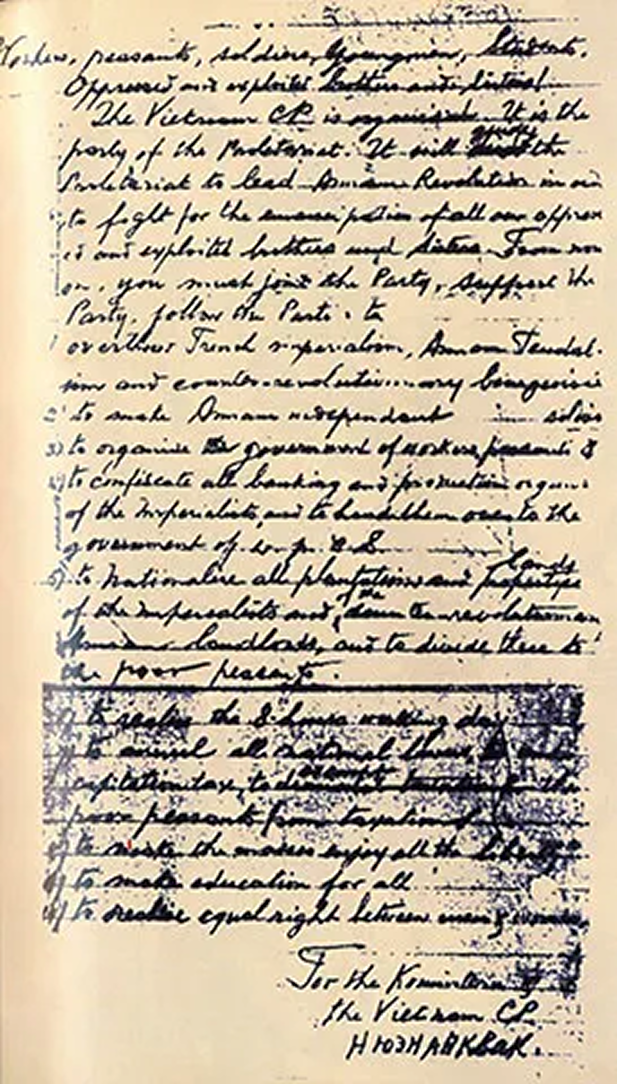 Workers, peasants, soldiers, Youngmen, Students.
Oppressed and exploited brothers and sisters!
The Vietnam CP is organised. It is the
party of the Proletariat. It will guide the
Proletariat to lead Annam Revolution in our
to fight for the emancipation of all our oppres
ed and exploited brothers and sisters. From now
on, you must joint the Party, support the
Party, follow the Party: to
1 overthrow French imperialism, Annam Feudal-
ism and counter-revolutionary bourgeoisie
2) to make Annam independant
3) to organise the government of workers, peasants &
4) to confiscate all banking and production organs
of the Imperialists, and to hand them over to the
government of w. p. & S.
5) to Nationalise all plantations and lands
of the Imperialists and the counter-revolutionary
Annam landlords, and to divide these to
the poor peasants.
to realise the 8-hours working day
to annul all national loans,
capitation tax, to exempt the
poor peasants from taxation
to make the masses enjoy all the liberty
to make education for all
10) to realise equal right between men & women.
For the Komintern &
the Vietnam CP.
НЮЭНАЙКВАК.